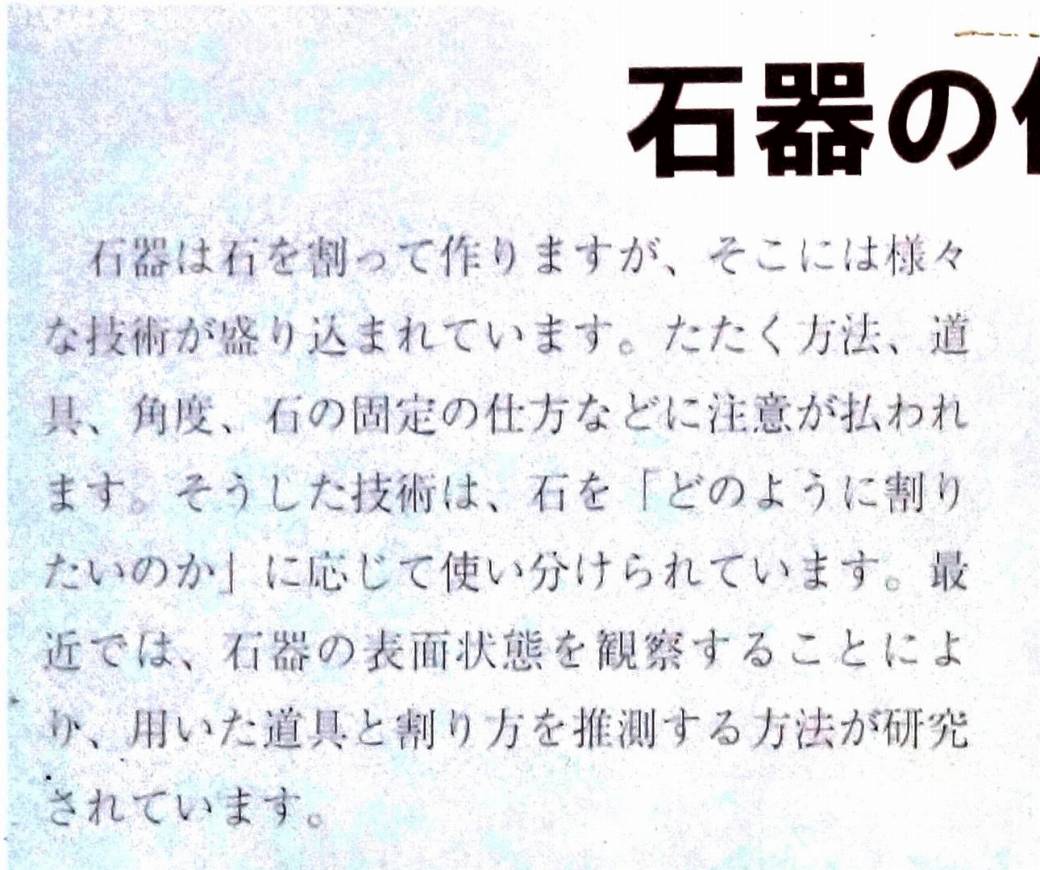 石器の
石器は石を割って作りますが、そこには様々
な技術が盛り込まれています。たたく方法、道
具、角度、石の固定の仕方などに注意が払われ
ます。そうした技術は、石を「どのように割り
たいのか」に応じて使い分けられています。最
近では、石器の表面状態を観察することによ
り、用いた道具と割り方を推測する方法が研究
されています。